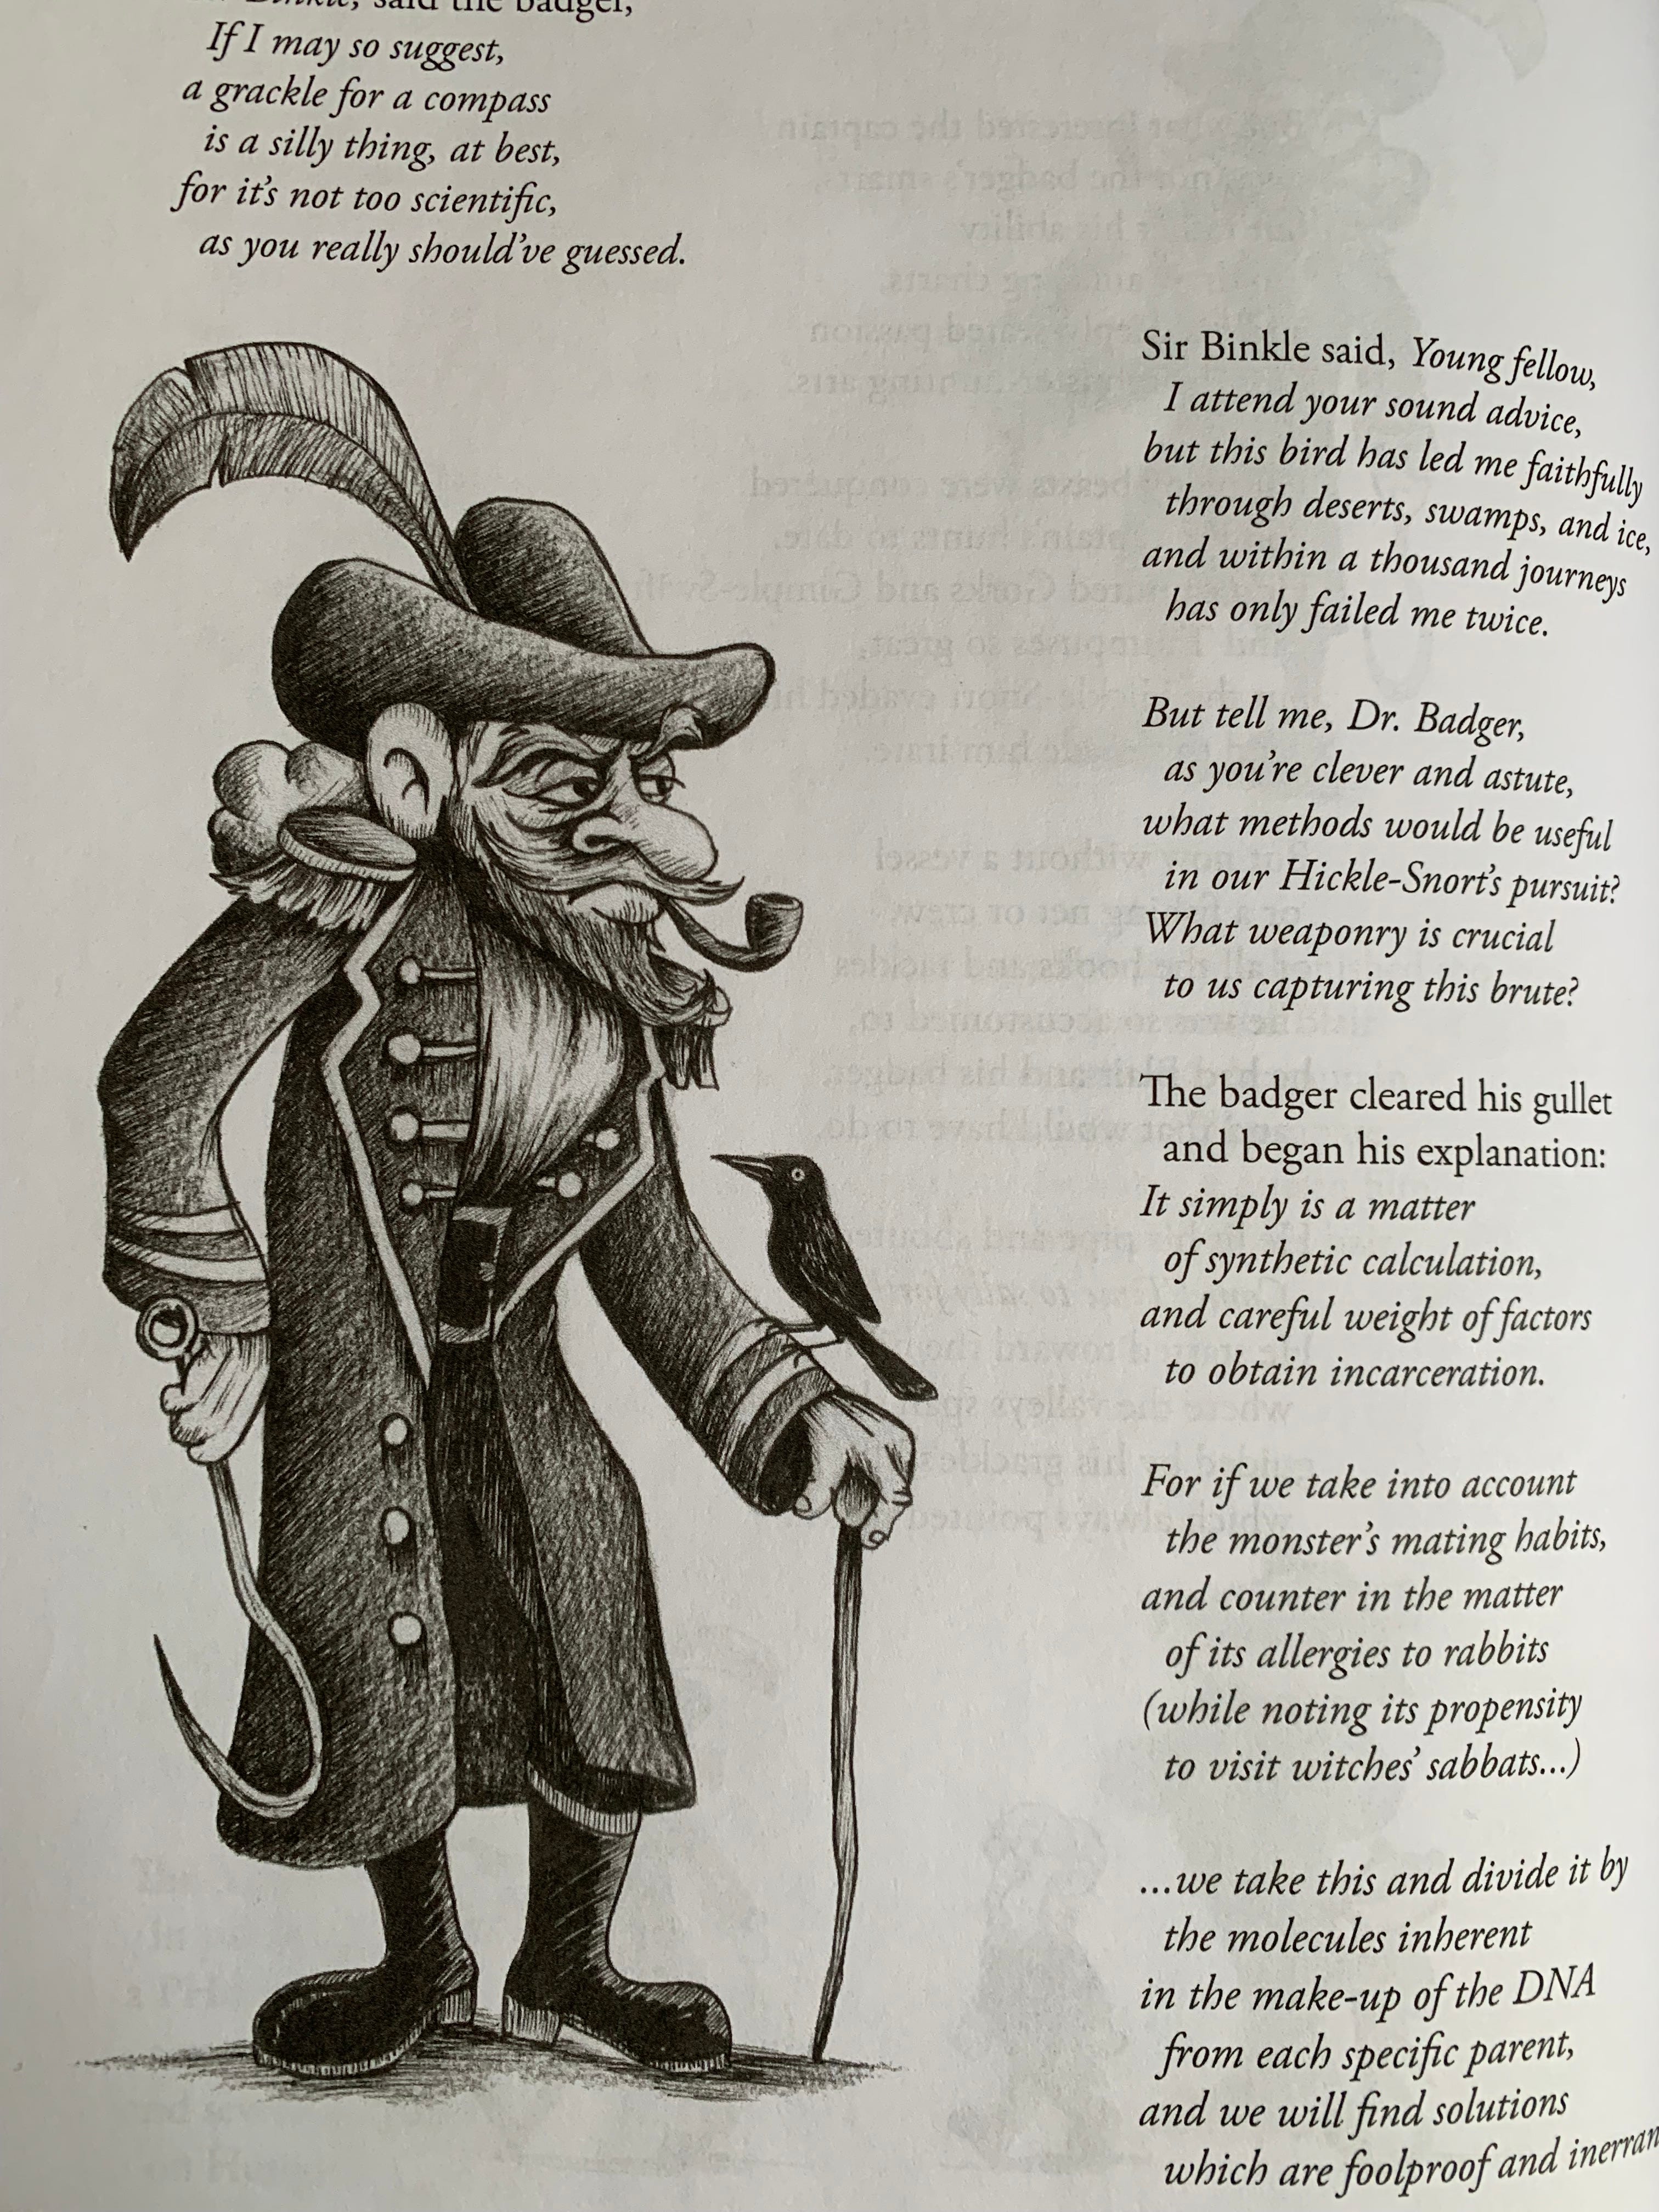 Binkle, said the badger,
If I may so suggest,
a grackle for a compass
is a silly thing, at best,
for it's not too scientific,
as you really should've guessed.
Sir Binkle said, Young fellow,
I attend your sound advice,
but this bird has led me faithfully
through deserts, swamps, and ice,
and within a thousand journeys
has only failed me twice.
But tell me, Dr. Badger,
as you're clever and astute,
what methods would be useful
in our Hickle-Snort's pursuit?
What weaponry is crucial
to us capturing this brute?
The badger cleared his gullet
and began his explanation:
It simply is a matter
of synthetic calculation,
and careful weight of factors
to obtain incarceration.
For if we take into account
the monster's mating habits,
and counter in the matter
of its allergies to rabbits
(while noting its propensity
to visit witches' sabbats...)
...we take this and divide it by
the molecules inherent
in the make-up of the DNA
from each specific parent,
and we will find solutions
which are foolproof and